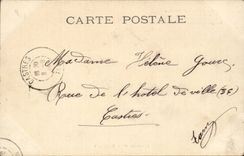 CARTE POSTALE
CASTRES
Madame Hélène Gourc
Rue de l'hotel de ville (36)
Castres
Tarn